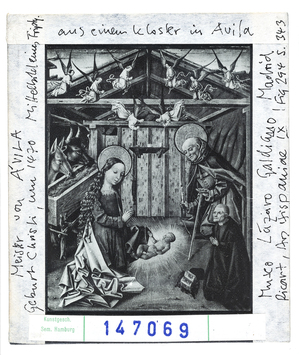 aus einem Kloster in Avila
Meister von AVILA
Geburt Christi, um 1470 Mittelbild eines Tript.
Museo Lázaro Galdiano Madrid
Ricart, Ars Hispaniae IX Fig 294 S. 343
Kunstgesch.
Sem. Hamburg
147069